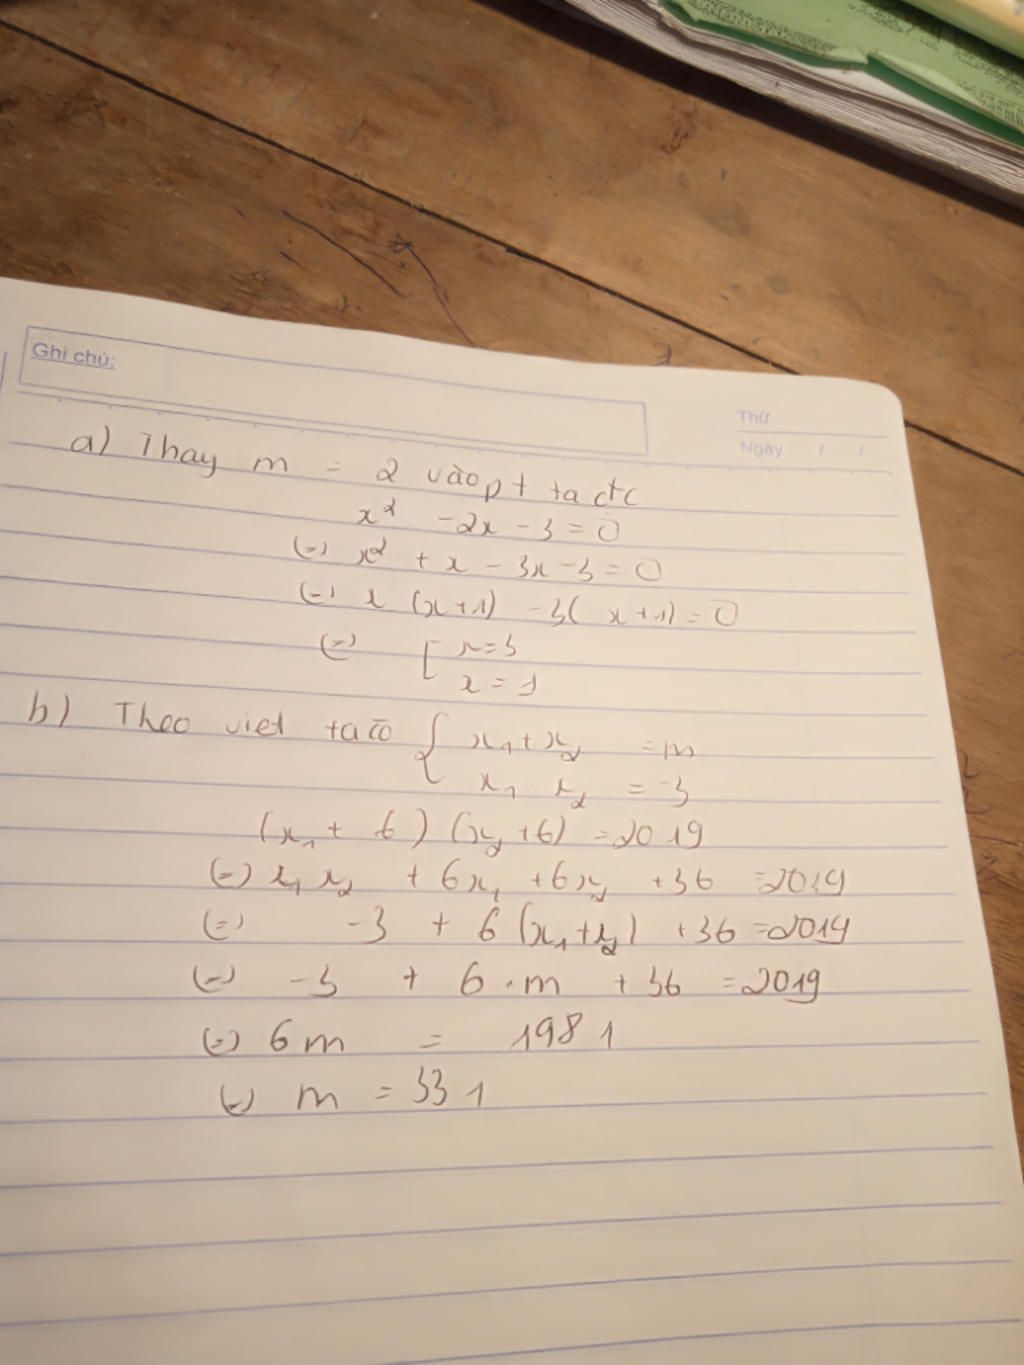 Ghi chú:
Thứ
Ngày / /
a) Thay m = 2 vào pt ta đc
x² - 2x - 3 = 0
(=) x² + x - 3x - 3 = 0
(=) x (x+1) - 3( x+1) = 0
(=) [ x=3
x = 1
b) Theo viet ta có { x₁ + x₂ = m
x₁ . x₂ = -3
(x₁ + 6) (x₂ + 6) = 2019
(=) x₁ x₂ + 6x₁ + 6x₂ + 36 = 2019
(=) -3 + 6 (x₁ + x₂) + 36 = 2019
(=) -3 + 6 . m + 36 = 2019
(=) 6m = 1981
(=) m = 331